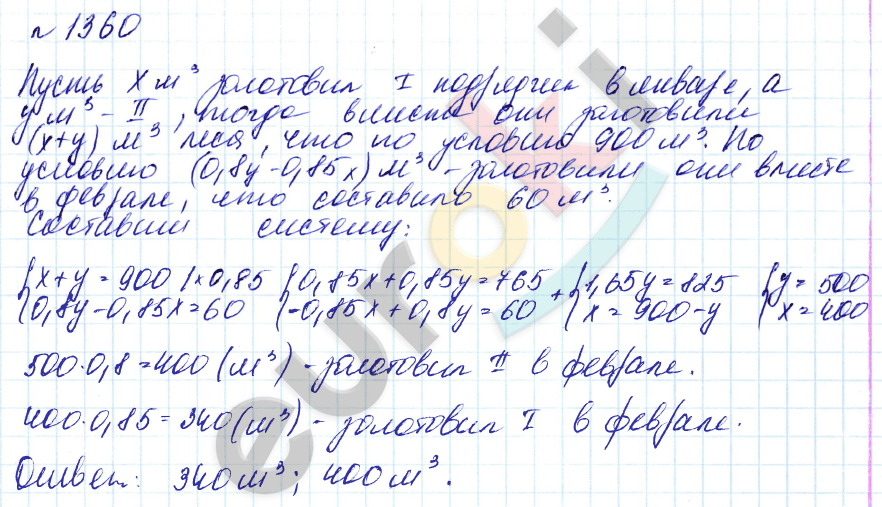 № 1360
Пусть x м³ заготовил I подрядчик в январе, а
y м³ - II, тогда вместе они заготовили
(x+y) м³ леса, что по условию 900 м³. По
условию (0,8y-0,85x) м³ - заготовили они вместе
в феврале, что составило 60 м³.
Составим систему:
{x+y=900 |×0,85 {0,85x+0,85y=765 + {1,65y=825 {y=500
{0,8y-0,85x=60 {-0,85x+0,8y=60 {x=900-y {x=400
500·0,8=400 (м³) - заготовил II в феврале.
400·0,85=340 (м³) - заготовил I в феврале.
Ответ: 340 м³; 400 м³.
euroki